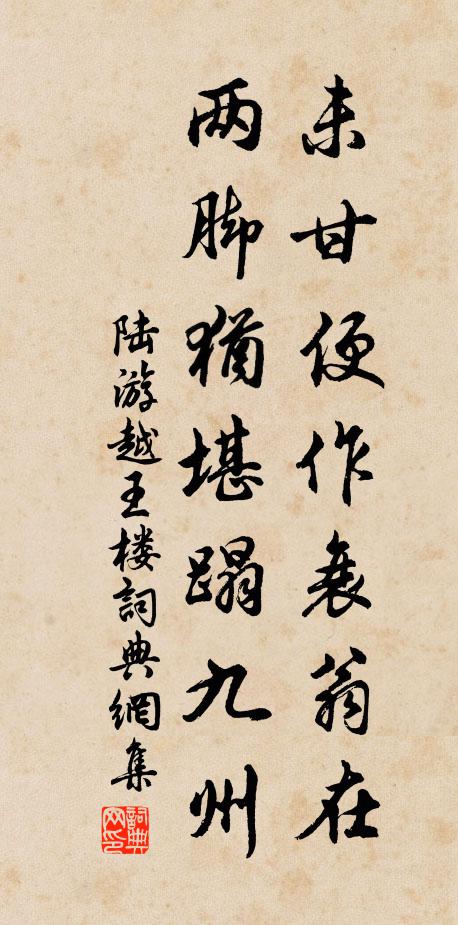 未甘便作衰翁在
两脚犹堪蹋九州
陆游越王楼詞典網集
詞典网印